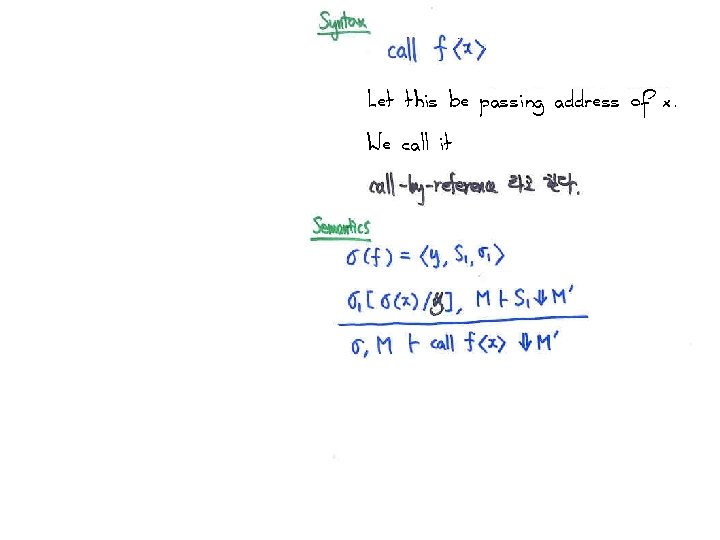 Syntax
call f⟨x⟩
Let this be passing address of x.
We call it
call-by-reference 라고 한다.
Semantics
σ(f) = ⟨y, S₁, σ₁⟩
σ₁[σ(x)/y], M ⊢ S₁ ⇓ M′
σ, M ⊢ call f⟨x⟩ ⇓ M′